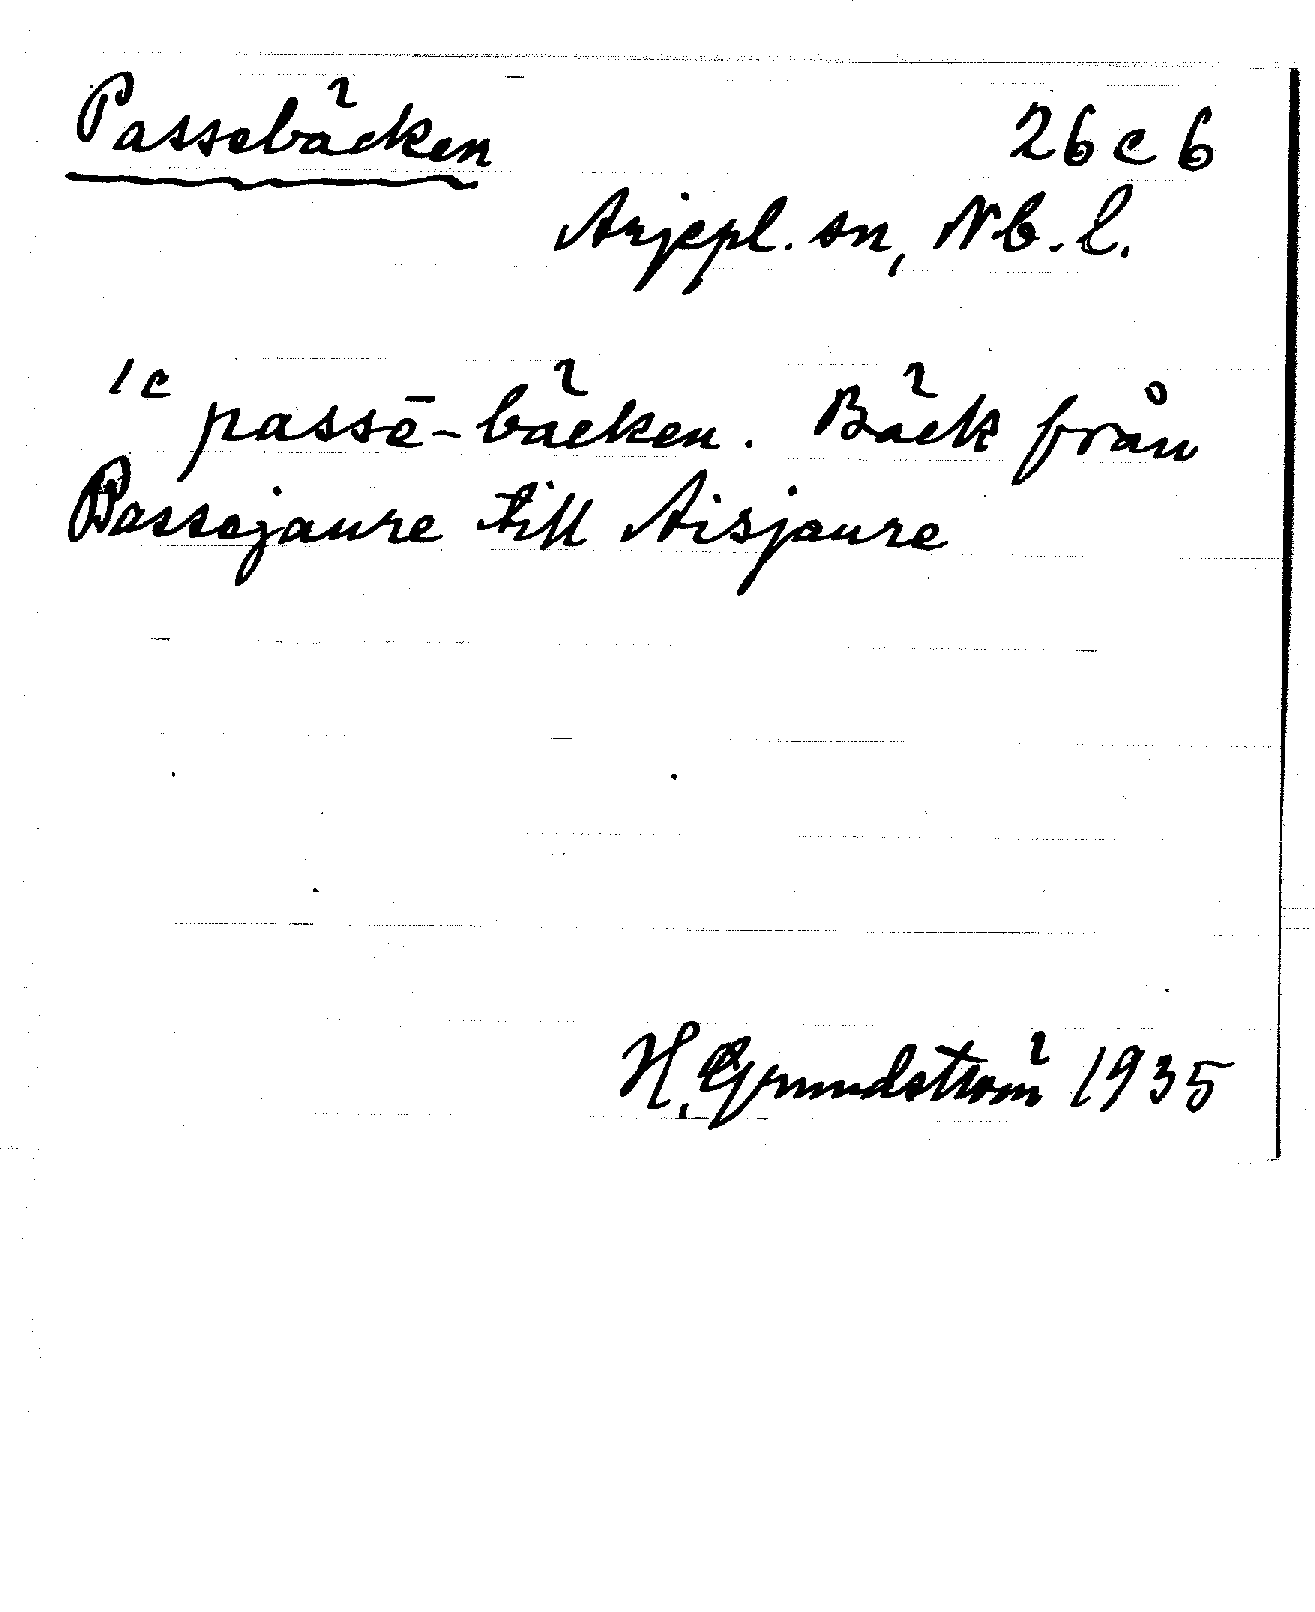 Passebäcken 26 c 6
Arjepl. sn, Nb. l.
1c passē-bäcken. Bäck från
Passejaure till Aisjaure
H. Grundström 1935